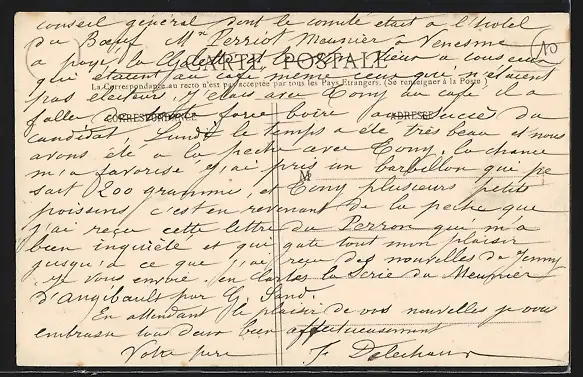 conseil général dont le comité était à l'hotel
du Bœuf Mr Perriot Meunier à Venesme
a payé la à tous ceux
CARTE POSTALE
qui étaient au café même ceux qui n'étaient
La Correspondance au recto n'est pas acceptée par tous les Pays Etrangers. (Se renseigner à la Poste)
pas électeurs. J'étais avec Tony au café il a
CORRESPONDANCE
ADRESSE
fallu boire au succès du
candidat, Lundi le temps a été très beau et nous
avons été a la peche avec Tony, la chance
m'a favorisé j'ai pris un barbillon qui pe
M
sait 200 grammes, et Tony plusieurs petits
poissons c'est en revenant de la peche que
j'ai reçu cette lettre du Perron qui m'a
bien inquiété et qui gate tout mon plaisir
jusqu'à ce que j'ai reçu des nouvelles de Jenny
je vous envoie en cartes la Serie du Meunier
d'Angibault par G. Sand.
En attendant le plaisir de vos nouvelles je vous
embrasse tous deux bien affectueusement
Votre père
10